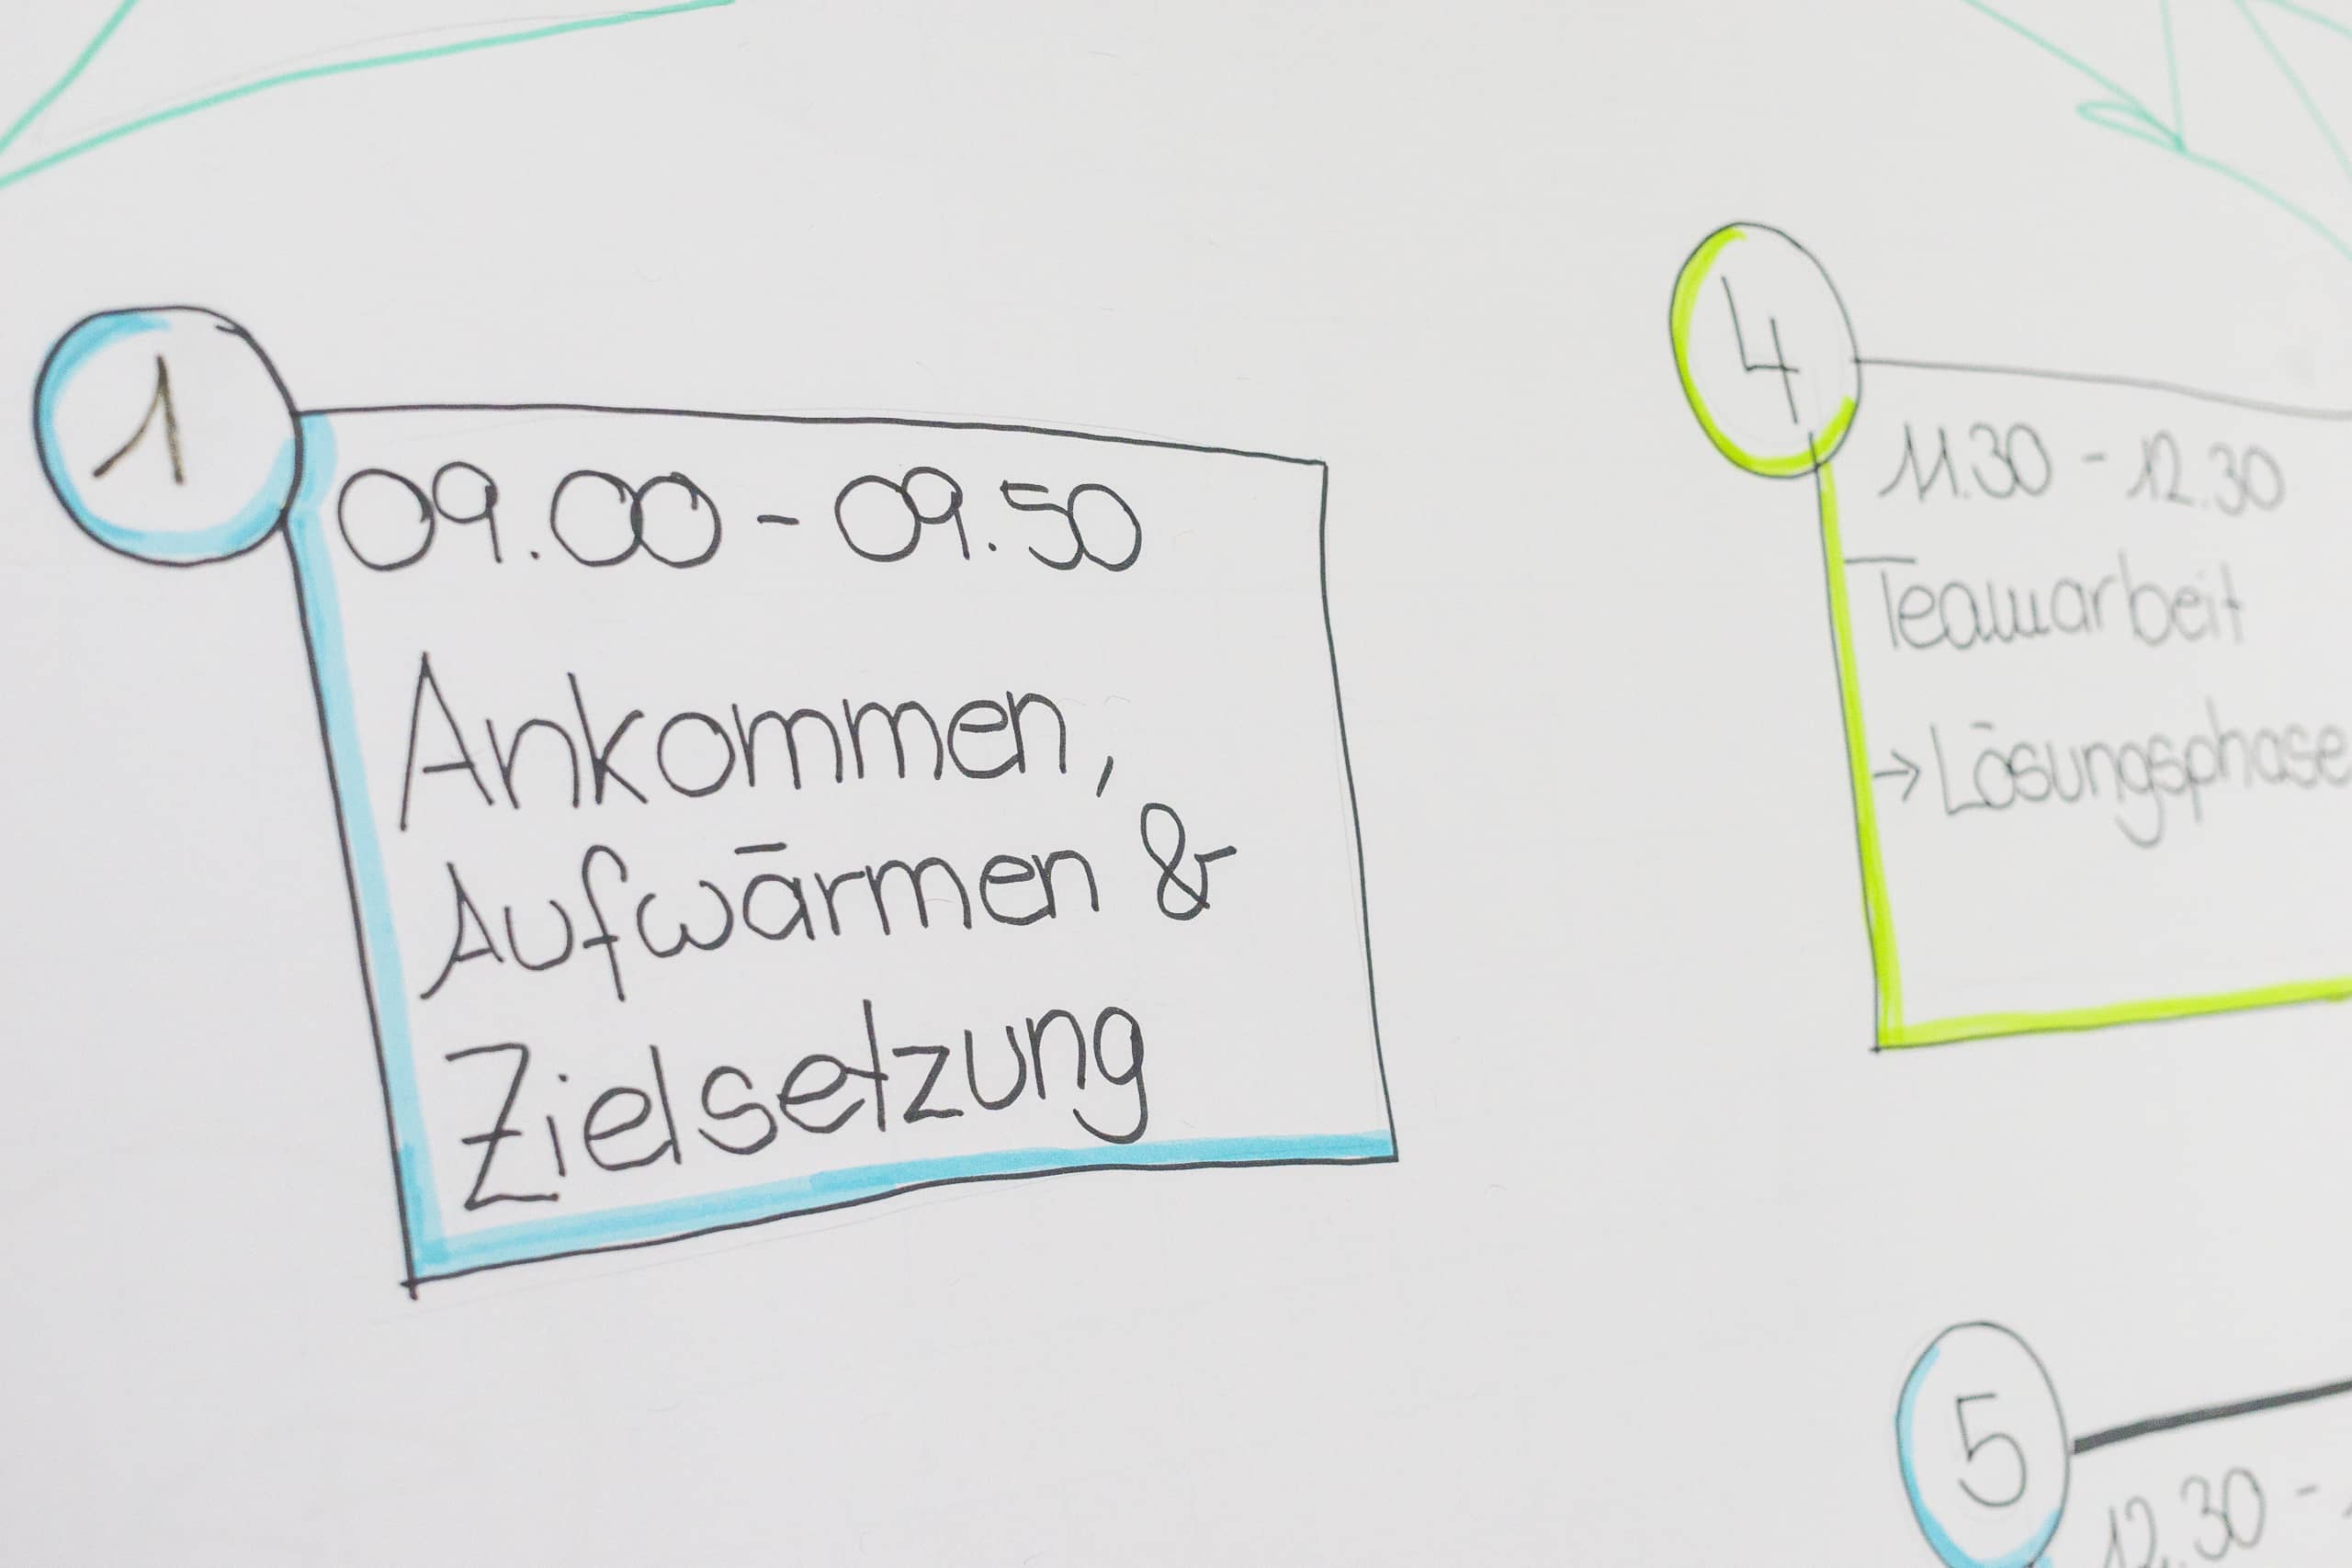 1
09.00 - 09.50
Ankommen,
Aufwärmen &
Zielsetzung
4
11.30 - 12.30
Teamarbeit
→ Lösungsphase
5
12.30 -